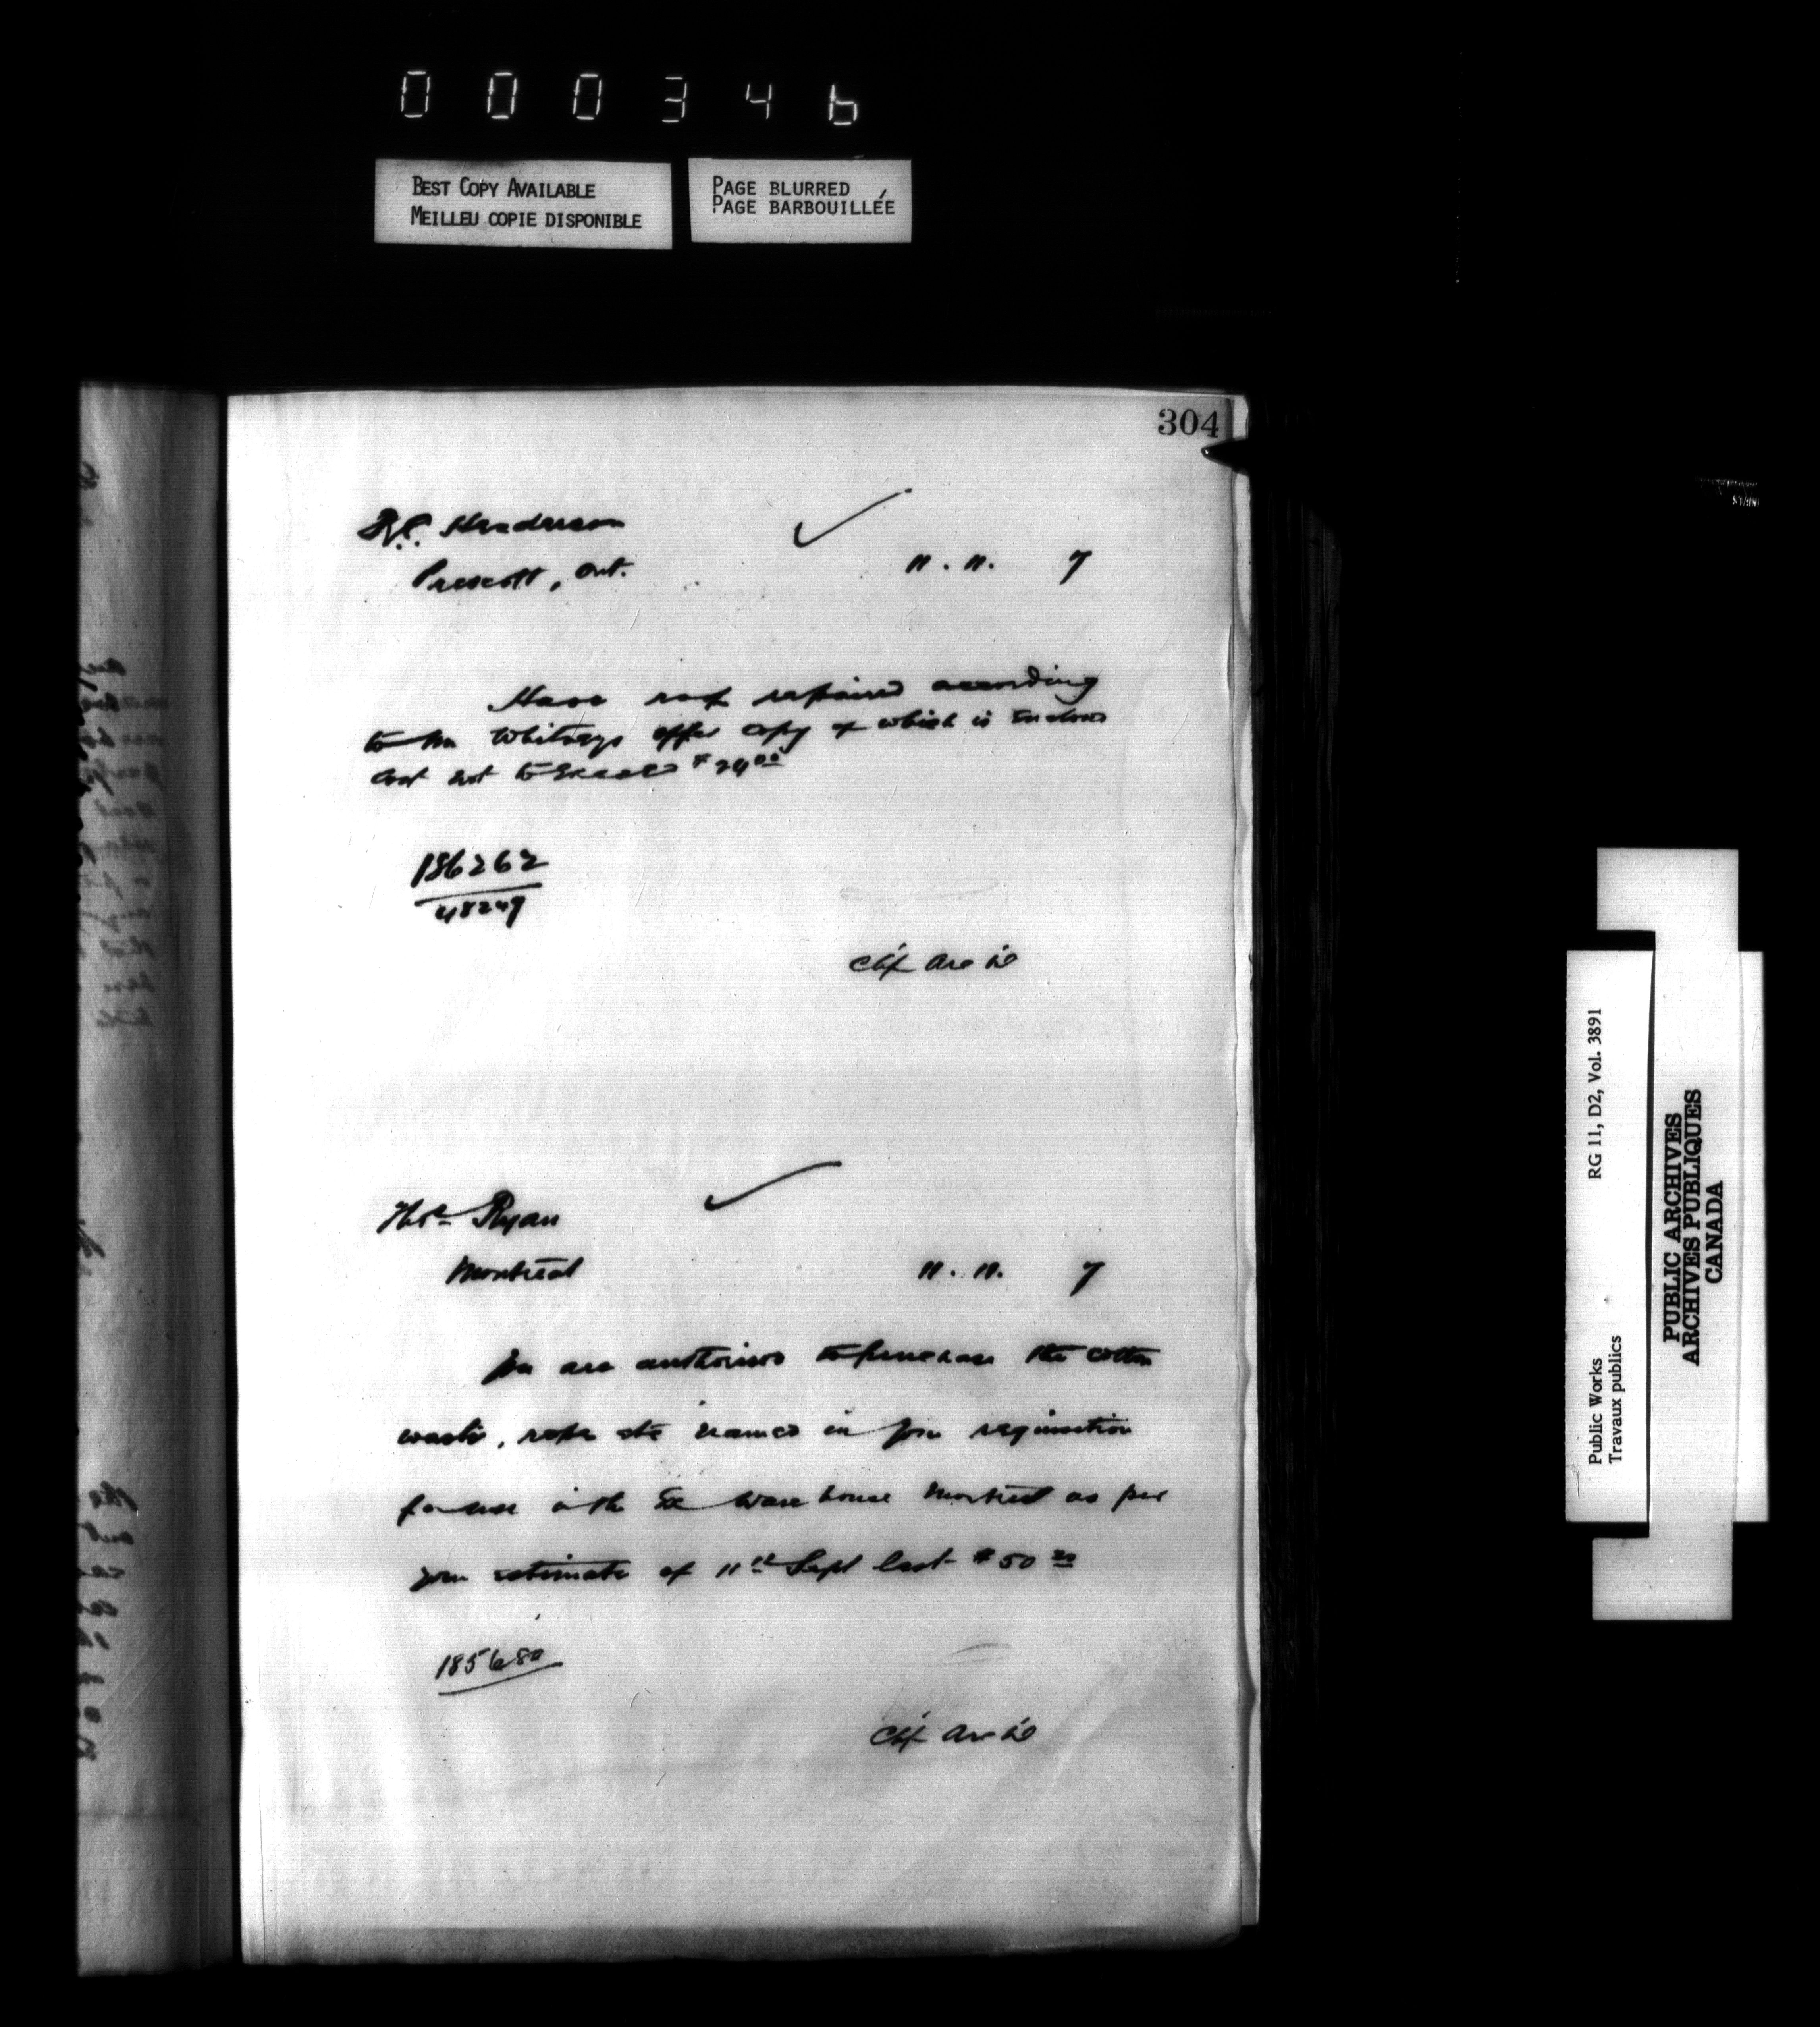 000346
BEST COPY AVAILABLE
MEILLEU COPIE DISPONIBLE
PAGE BLURRED
PAGE BARBOUILLÉE
304
Henderson
Prescott, Ont.
11. 11. 7
Have roof repaired according
to Mr Whitneys offer copy of which is enclosed
Cost not to exceed $24 00
186262
48249
Chf Arch
Thos Ryan
Montreal
11. 11. 7
You are authorised to purchase the cotton
waste, rope etc named in your requisition
for use in the Ex warehouse Montreal as per
your estimate of 11th Sept last $50 00
185680
Chf Arch
Public Works
Travaux publics
RG 11, D2, Vol. 3891
PUBLIC ARCHIVES
ARCHIVES PUBLIQUES
CANADA